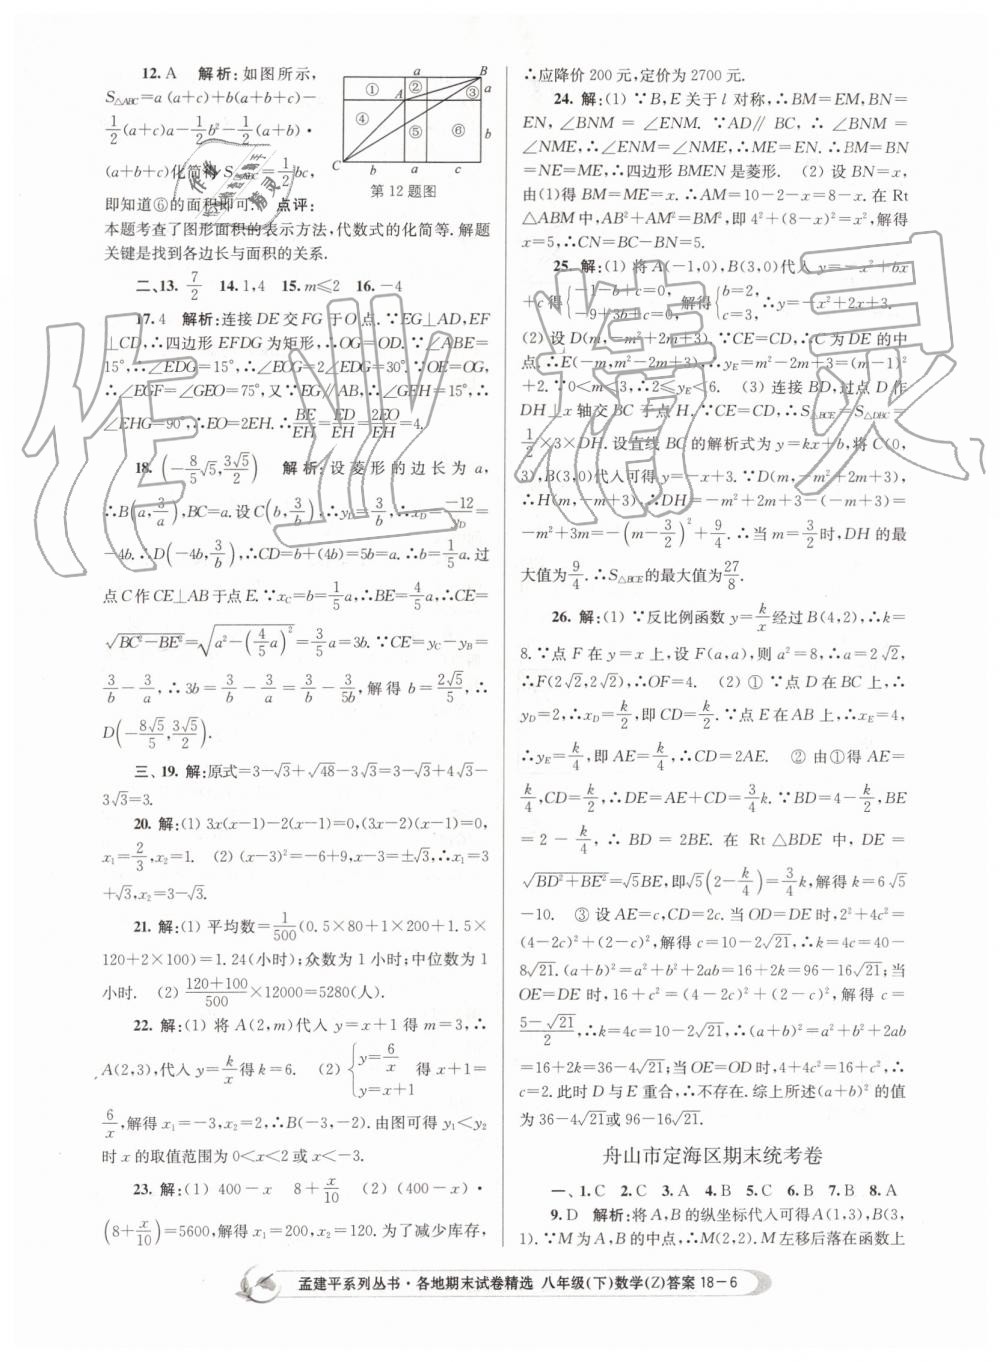 12. A 解析:如图所示,
S△ABC=a(a+c)+b(a+b+c)-
1/2(a+c)a-1/2b²-1/2(a+b)·
(a+b+c)化简得S△ABC=1/2bc,
即知道⑥的面积即可. 点评:
a B ① ② ③ a A ④ ⑤ ⑥ b C b a c
第12题图
本题考查了图形面积的表示方法,代数式的化简等.解题
关键是找到各边长与面积的关系.
二、13. 7/2 14. 1,4 15. m≤2 16. -4
17. 4 解析:连接DE交FG于O点.∵EG⊥AD,EF
⊥CD,∴四边形EFDG为矩形,∴OG=OD.∵∠BAE=
15°,∴∠EDG=15°,∴∠EOG=2∠EDG=30°.∵OE=OG,
∴∠EGF=∠GEO=75°,又∵EG∥AB,∴∠GEH=15°,∴
∠EHG=90°,∴EO=2EH.∴BE/EH=ED/EH=2EO/EH=4.
18. (-8/5√5,3√5/2) 解析:设菱形的边长为a,
∴B(a,3/a),BC=a.设C(b,3/b),∴yD=3/b,∴xD=-12/yD=
-4b.∴D(-4b,3/b),∴CD=b+(4b)=5b=a.∴b=1/5a.过
点C作CE⊥AB于点E.∵xC=b=1/5a,∴BE=4/5a,∴CE=
√(BC²-BE²)=√(a²-(4/5a)²)=3/5a=3b.∵CE=yC-yB=
3/b-3/a,∴3b=3/b-3/a=3/b-3/5b,解得b=2√5/5,∴
D(-8√5/5,3√5/2).
三、19. 解:原式=3-√3+√48-3√3=3-√3+4√3-
3√3=3.
20. 解:(1) 3x(x-1)-2(x-1)=0,(3x-2)(x-1)=0,
x₁=2/3,x₂=1. (2) (x-3)²=-6+9,x-3=±√3,∴x₁=3
+√3,x₂=3-√3.
21. 解:(1) 平均数=1/500(0.5×80+1×200+1.5×
120+2×100)=1.24(小时);众数为1小时;中位数为1
小时. (2) (120+100)/500×12000=5280(人).
22. 解:(1) 将A(2,m)代入y=x+1得m=3,∴
A(2,3),代入y=k/x得k=6. (2) {y=6/x y=x+1 得x+1=
6/x,解得x₁=-3,x₂=2.∴B(-3,-2).由图可得y₁<y₂
时x的取值范围为0<x<2或x<-3.
23. 解:(1) 400-x 8+x/10 (2) (400-x)·
(8+x/10)=5600,解得x₁=200,x₂=120.为了减少库存,
∴应降价200元,定价为2700元.
24. 解:(1) ∵B,E关于l对称,∴BM=EM,BN=
EN,∠BNM=∠ENM.∵AD∥BC,∴∠BNM=
∠NME,∴∠ENM=∠NME,∴ME=EN.∴BM=BN
=NE=ME,∴四边形BMEN是菱形. (2) 设BN=x,
由(1)得BM=ME=x.∴AM=10-2-x=8-x.在Rt
△ABM中,AB²+AM²=BM²,即4²+(8-x)²=x²,解得
x=5,∴CN=BC-BN=5.
25. 解:(1) 将A(-1,0),B(3,0)代入y=-x²+bx
+c得{-1-b+c=0, -9+3b+c=0, 解得{b=2, c=3, ∴y=-x²+2x+3.
(2) 设D(m,-m²+2m+3).∵CE=CD,∴C为DE的中
点,∴E(-m,m²-2m+3),∴yE=m²-2m+3=(m-1)²
+2.∵0<m<3,∴2≤yE<6. (3) 连接BD,过点D作
DH⊥x轴交BC于点H.∵CE=CD,∴S△BCE=S△DBC=
1/2×3×DH.设直线BC的解析式为y=kx+b,将C(0,
3),B(3,0)代入可得y=-x+3.∵D(m,-m²+2m+3),
∴H(m,-m+3),∴DH=-m²+2m+3-(-m+3)=
-m²+3m=-(m-3/2)²+9/4.∴当m=3/2时,DH的最
大值为9/4.∴S△BCE的最大值为27/8.
26. 解:(1) ∵反比例函数y=k/x经过B(4,2),∴k=
8.∵点F在y=x上,设F(a,a),则a²=8,∴a=2√2,
∴F(2√2,2√2),∴OF=4. (2) ① ∵点D在BC上,∴
yD=2,∴xD=k/2,即CD=k/2.∵点E在AB上,∴xE=4,
∴yE=k/4,即AE=k/4,∴CD=2AE. ② 由①得AE=
k/4,CD=k/2,∴DE=AE+CD=3/4k.∵BD=4-k/2,BE
=2-k/4,∴BD=2BE.在Rt△BDE中,DE=
√(BD²+BE²)=√5BE,即√5(2-k/4)=3/4k,解得k=6√5
-10. ③ 设AE=c,CD=2c.当OD=DE时,2²+4c²=
(4-2c)²+(2-c)²,解得c=10-2√21,∴k=4c=40-
8√21.(a+b)²=a²+b²+2ab=16+2k=96-16√21;当
OE=DE时,16+c²=(4-2c)²+(2-c)²,解得c=
(5-√21)/2,∴k=4c=10-2√21,∴(a+b)²=a²+b²+2ab
=16+2k=36-4√21;当OE=OD时,4+4c²=16+c²,∴
c=2.此时D与E重合,∴不存在.综上所述(a+b)²的值
为36-4√21或96-16√21.
舟山市定海区期末统考卷
一、1. C 2. C 3. A 4. B 5. C 6. B 7. B 8. A
9. D 解析:将A,B的纵坐标代入可得A(1,3),B(3,
1).∵M为A,B的中点,∴M(2,2).M左移后落在函数上
孟建平系列丛书·各地期末试卷精选 八年级(下)数学(Z)答案 18-6
作业精灵